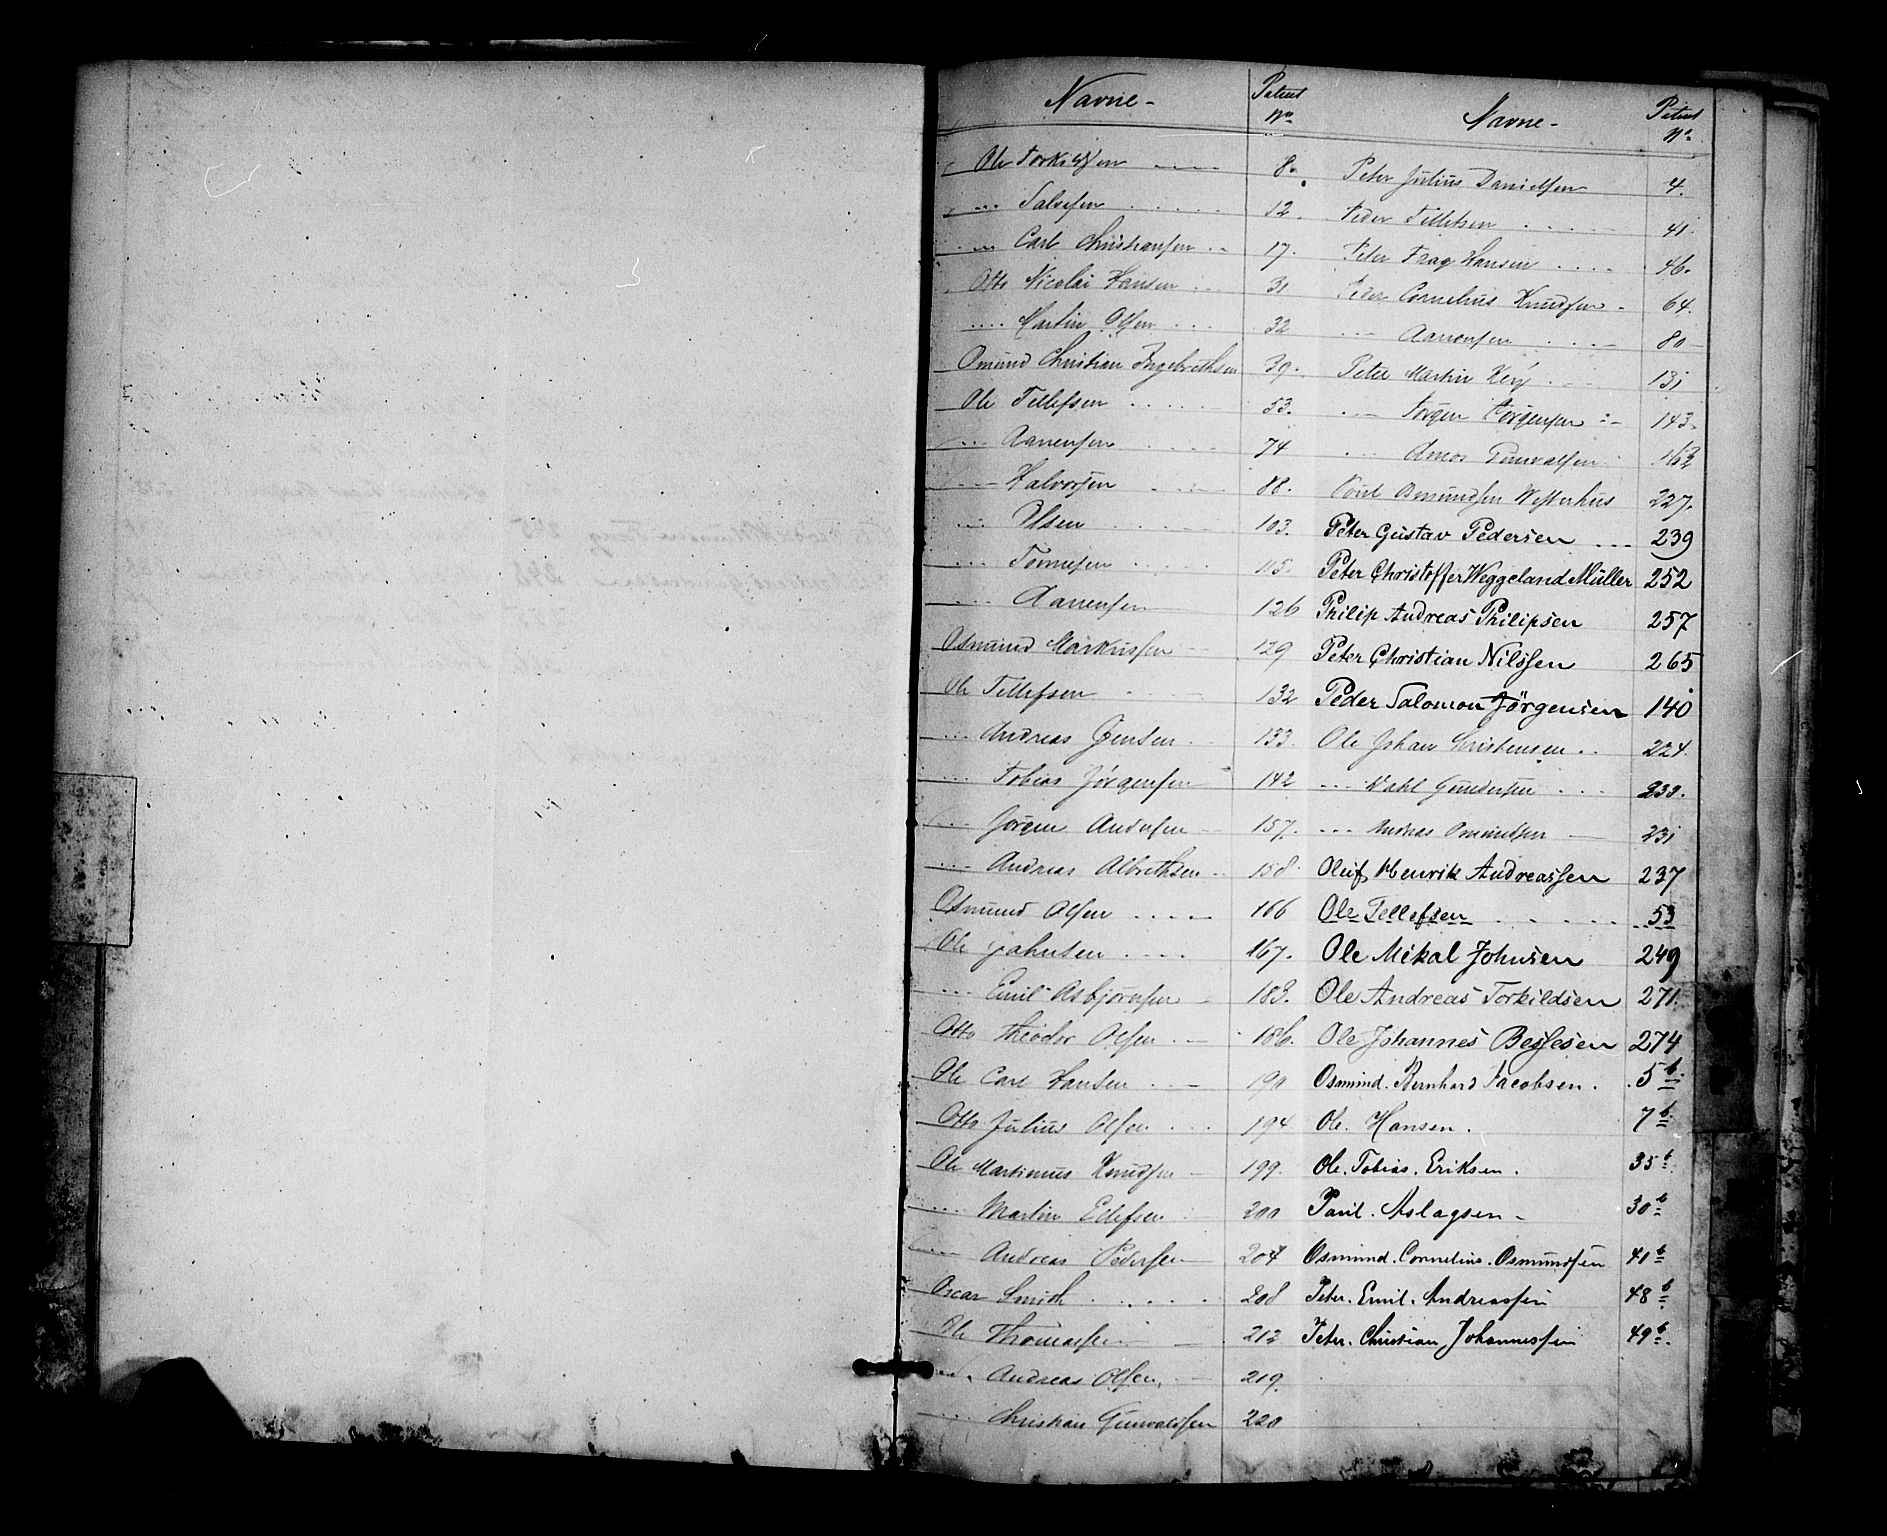 Navne - Patent No
Ole Torkildsen 8.
... Salvesen 12.
... Carl Christiansen 17.
Otto Nicolai Hansen 31
.... Martin Olsen 32
Omund Christian Ingebrethsen 39.
Ole Tellefsen 53.
... Aanensen 74
... Halvorsen 88.
... Olsen 103.
... Tønnesen 115.
... Aanensen 126
Osmund Markussen 129
Ole Tellefsen 132
... Andreas Jensen 133.
... Tobias Jørgensen 142
... Jörgen Andersen 157.
... Andreas Albrethsen 158.
Osmund Olsen 166
Ole Johnsen 167.
... Emil Asbjørnsen 183.
Otto Theodor Olsen 186.
Ole Carl Hansen 190
Otto Julius Olsen 194
Ole Martinius Knudsen 199.
.... Martin Edlefsen 200
.... Andreas Pedersen 204
Oscar Smith 208
Ole Thomassen 213
.... Andreas Olsen. 219.
.... Christian Gunvaldsen 220
Navne - Patent No
Peter Julius Danielsen 4.
Peder Tellefsen 41
Peter Frag Hansen 46.
Peder Cornelius Knudsen 64.
... Aanensen 80
Peter Martin 131
... Jørgen Jørgensen 143.
... Amos Gunvaldsen 163
Poul Osmundsen Westerhus 227.
Peter Gustav Pedersen 239
Peter Christoffer Weggeland Müller 252
Philip Andreas Philipsen 257
Peter Christian Nilssen 265
Peder Salomon Jørgensen 140
Ole Johan Christensen 224.
... Wahl Gundersen 233.
... Andreas Omundsen 231
Oluf Henrik Andreassen 237
Ole Tellefsen 53
Ole Mikal Johnsen 249
Ole Andreas Torkildsen 271.
Ole Johannes Bessesen 274
Osmund. Bernhard Jacobsen. 5 b
Ole. Hansen. 7 b
Ole. Tobias. Eriksen. 35 b
Paul. Aslagsen - 30 b
Osmund. Cornelius. Osmundsen 41 b
Peter. Emil. Andreassen 48 b
Peter. Christian Johannessen 49 b